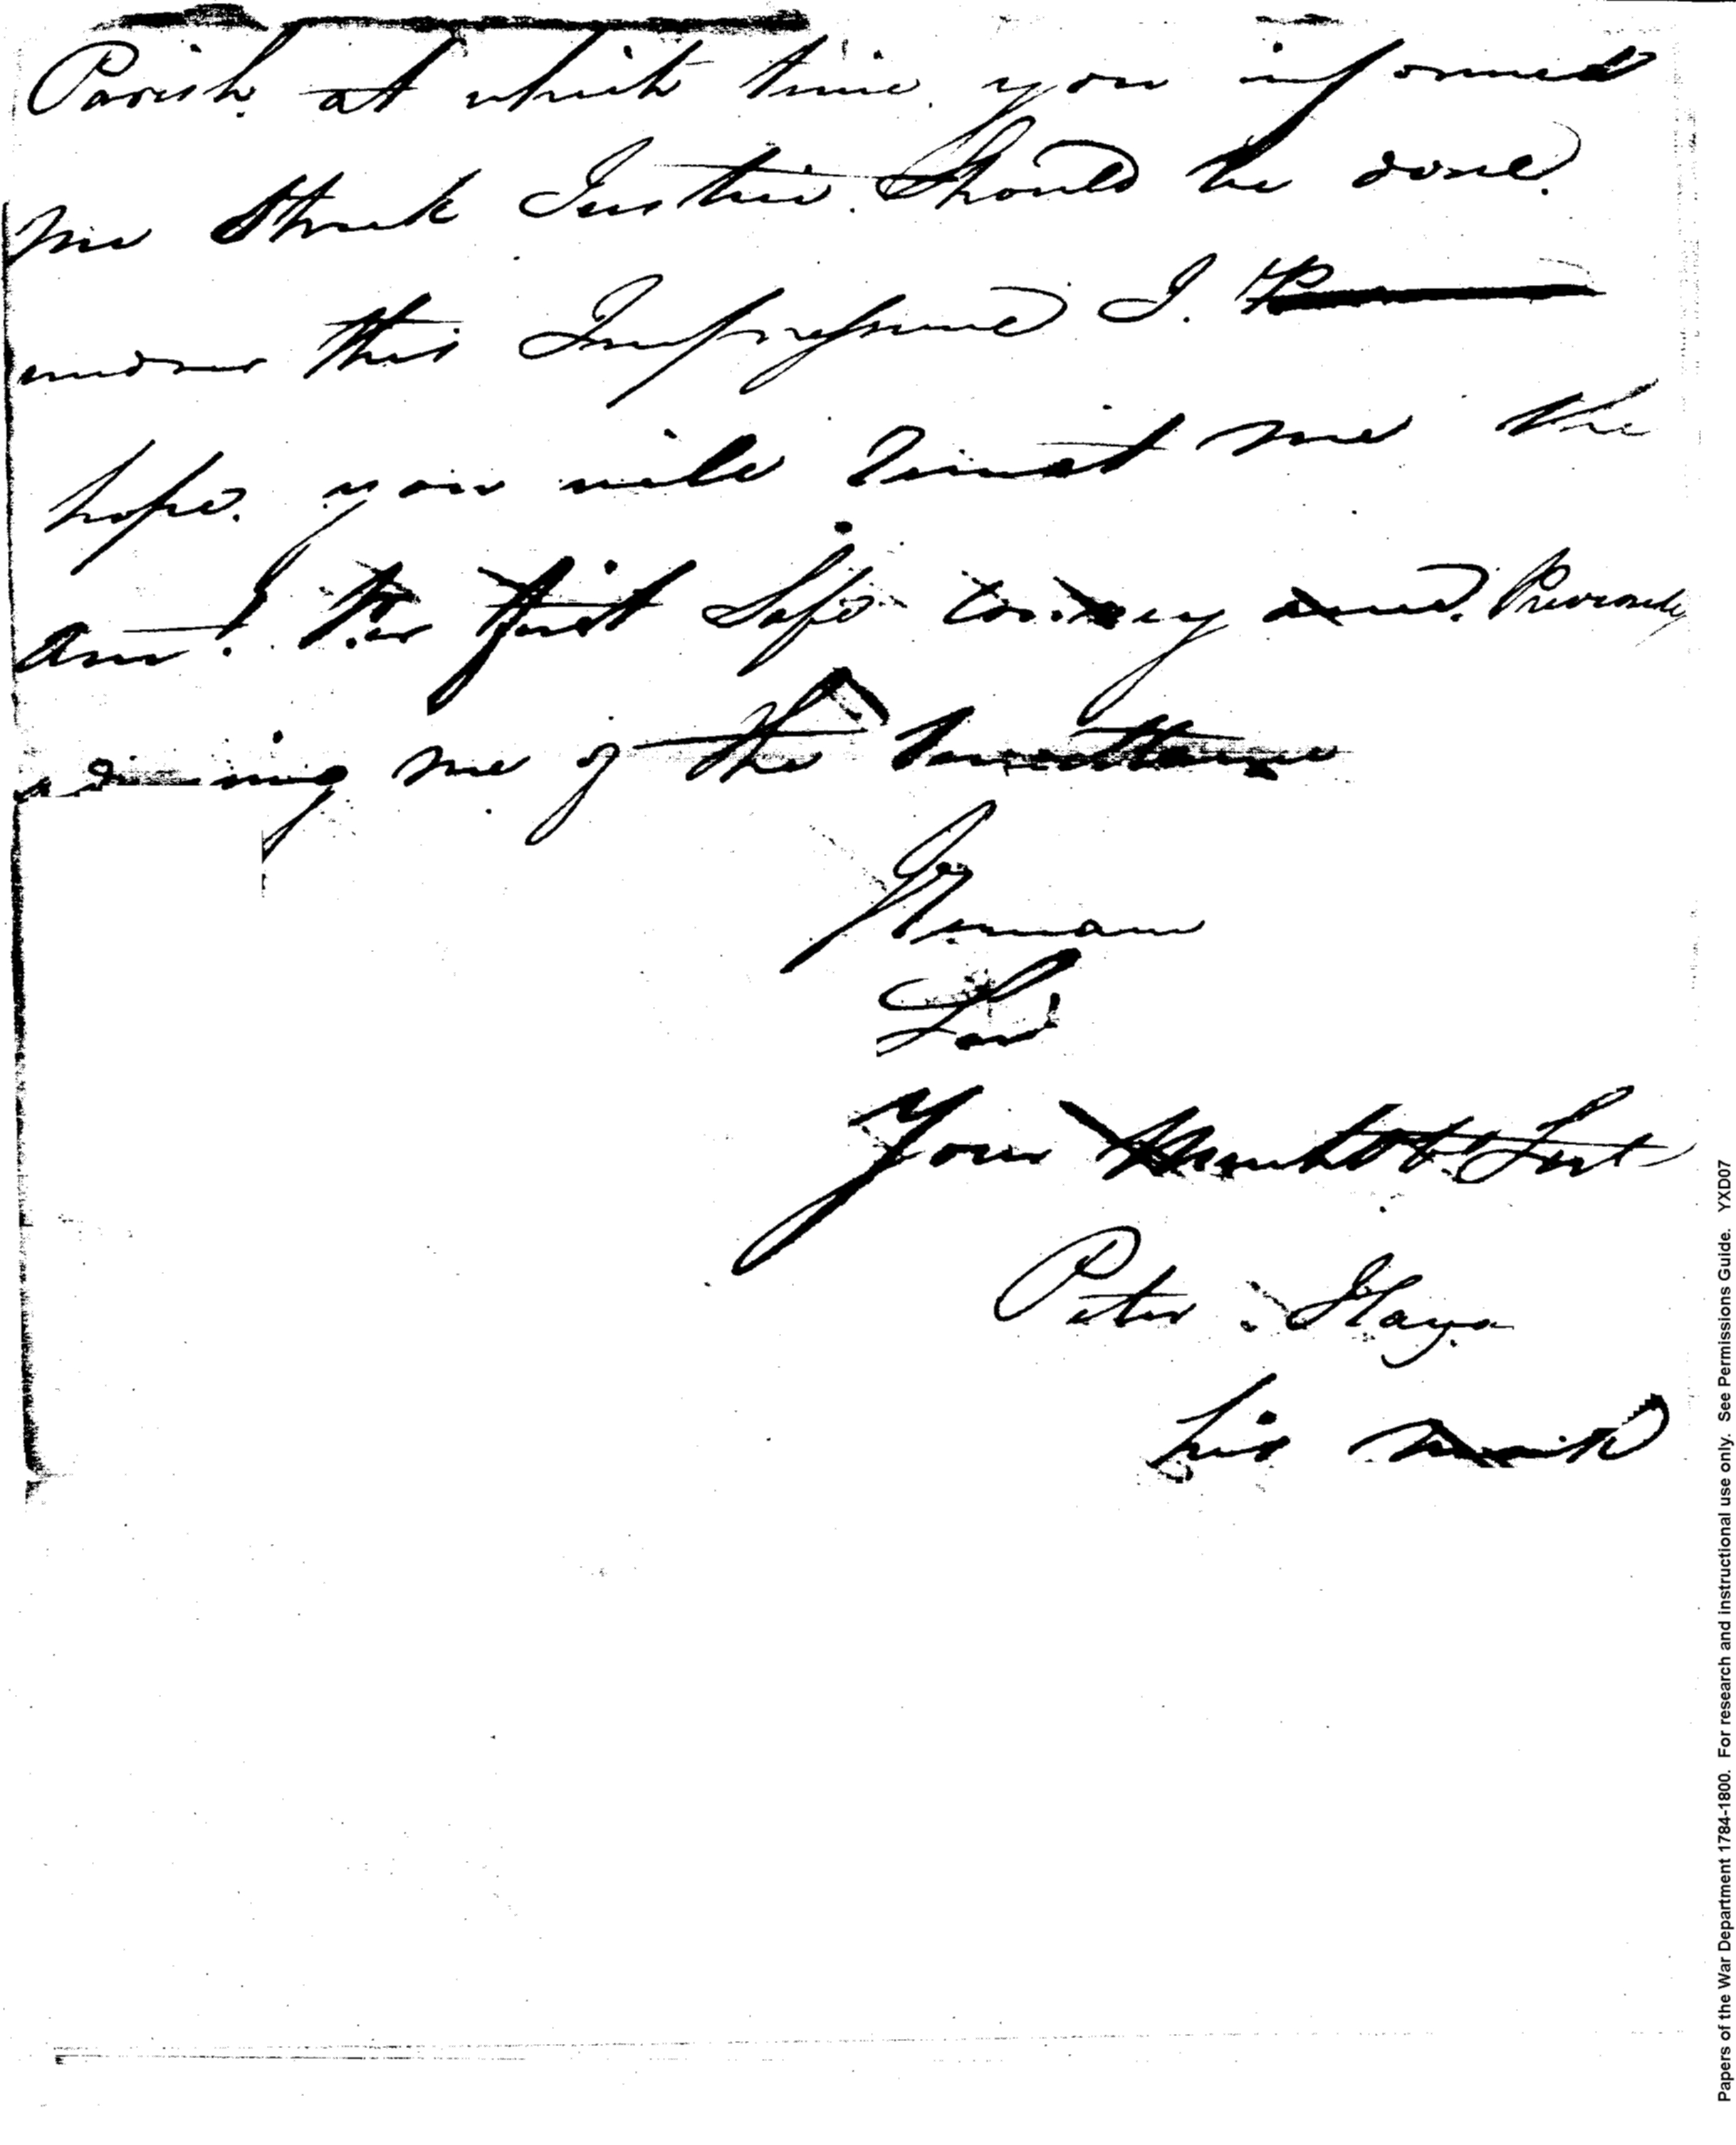 Parish at which time you informed
me Strick Justice Should be done
under this Impression I
hope you will Remit me the
Amt. Per first Safe convey and Previously
advising me of the Remittance
I Remain
Sir
Your Humble Sert
Peter Hays
his mark
Papers of the War Department 1784-1800. For research and instructional use only. See Permissions Guide. YXD07